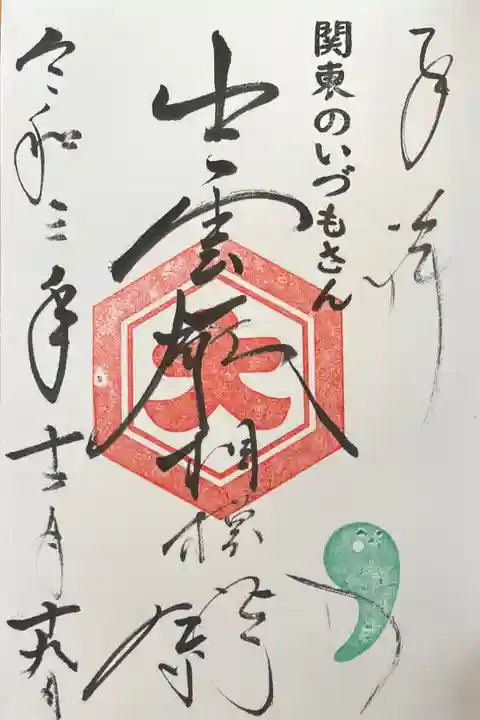 奉拝
関東のいづもさん
出雲大社相模分祠
大
令和三年十二月十九日